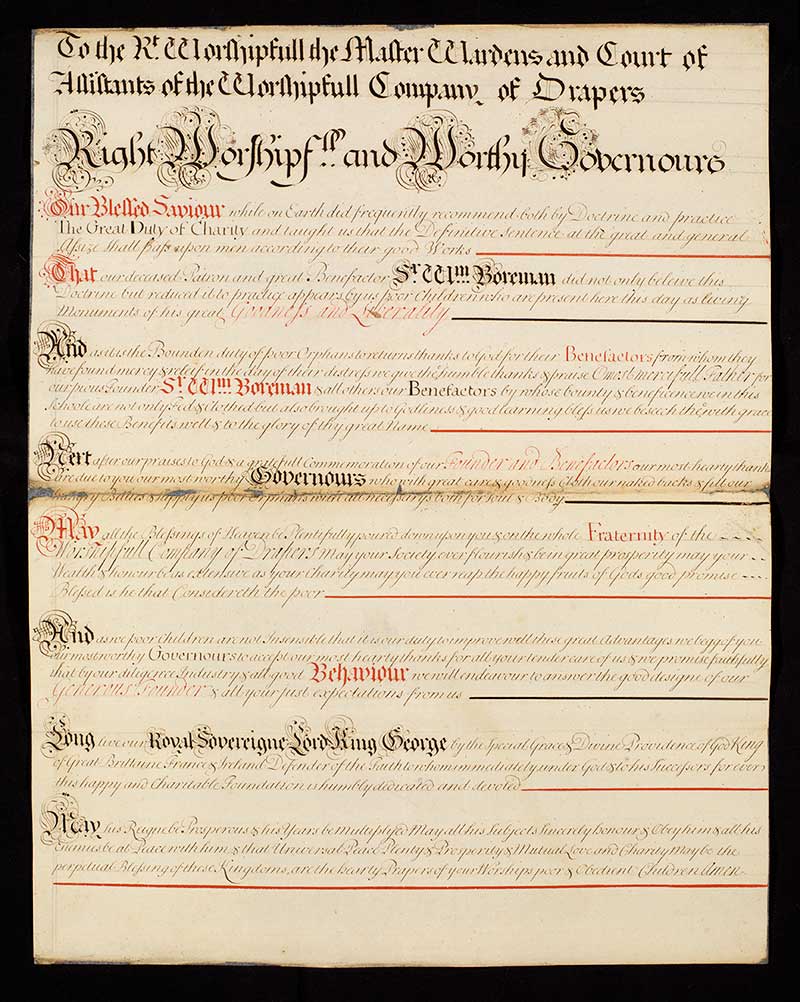 To the Rt. Worshipfull the Master Wardens and Court of
Assistants of the Worshipfull Company of Drapers
Right Worshipfll. and Worthy Governours
Our Blessed Saviour while on Earth did frequently recommend both by Doctrine and practice
The Great Duty of Charity and taught us that the Definitive Sentence at the great and general
Assize shall pass upon men according to their good Works
That our deceased Patron and great Benefactor Sr. Wm Boreman did not only beleive this
Doctrine but reduced it to practice appears by us poor Children who are present here this day as living
Monuments of his great Goodness and Liberality
And as it is the Bounden duty of poor Orphans to returns thanks to God for their Benefactors from whom they
have found mercy & releif in the day of their distress we give the humble thanks & praise O most mercifull Father for
our pious Founder Sr. Wm Boreman & all others our Benefactors by whose bounty & beneficence we in this
Schoole are not only Fed & Clothed but also brought up to Godliness & good learning bless us we beseech the with grace
to use these Benefits well & to the glory of thy great Name
Next after our praises to God & a gratefull Commemoration of our Founder and Benefactors our most hearty thanks
are due to you our most worthy Governours who with great care & goodness Cloth our naked backs & fill our
hungry Bellies & supply us poor Orphans with all necessarys both for Soul & Body
May all the Blessings of Heaven be Plentifully poured down upon you & on the whole Fraternity of the
Worshipfull Company of Drapers may your Society ever flourish & be in great prosperity may your
Wealth & honour be as extensive as your Charity may you ever reap the happy fruits of Gods good promise
Blessed is he that Considereth the poor
And as we poor Children are not Insensible that it is our duty to improve well these great Advantages we begg of you
our most worthy Governours to accept our most hearty thanks for all your tender care of us & we promise faithfully
that by our diligence Industry & all good Behaviour we will endeavour to answer the good designe of our
Generous Founder & all your just expectations from us
Long live our Royal Sovereigne Lord King George by the Special Grace & Divine Providence of God King
of Great Brittaine France & Ireland Defender of the Faith to whom immediately under God & to his Successors for ever
this happy and Charitable Foundation is humbly dedicated and devoted
May his Reigne be Prosperous & his Years be Multiplyed May all his Subjects Sincerely honour & Obey him & all his
Enemies be at Peace with him & that Universal Peace Plenty & Prosperity & Mutual Love and Charity May be the
perpetual Blessing of these Kingdoms, are the hearty Prayers of your Worships poor & Obedient Children Amen